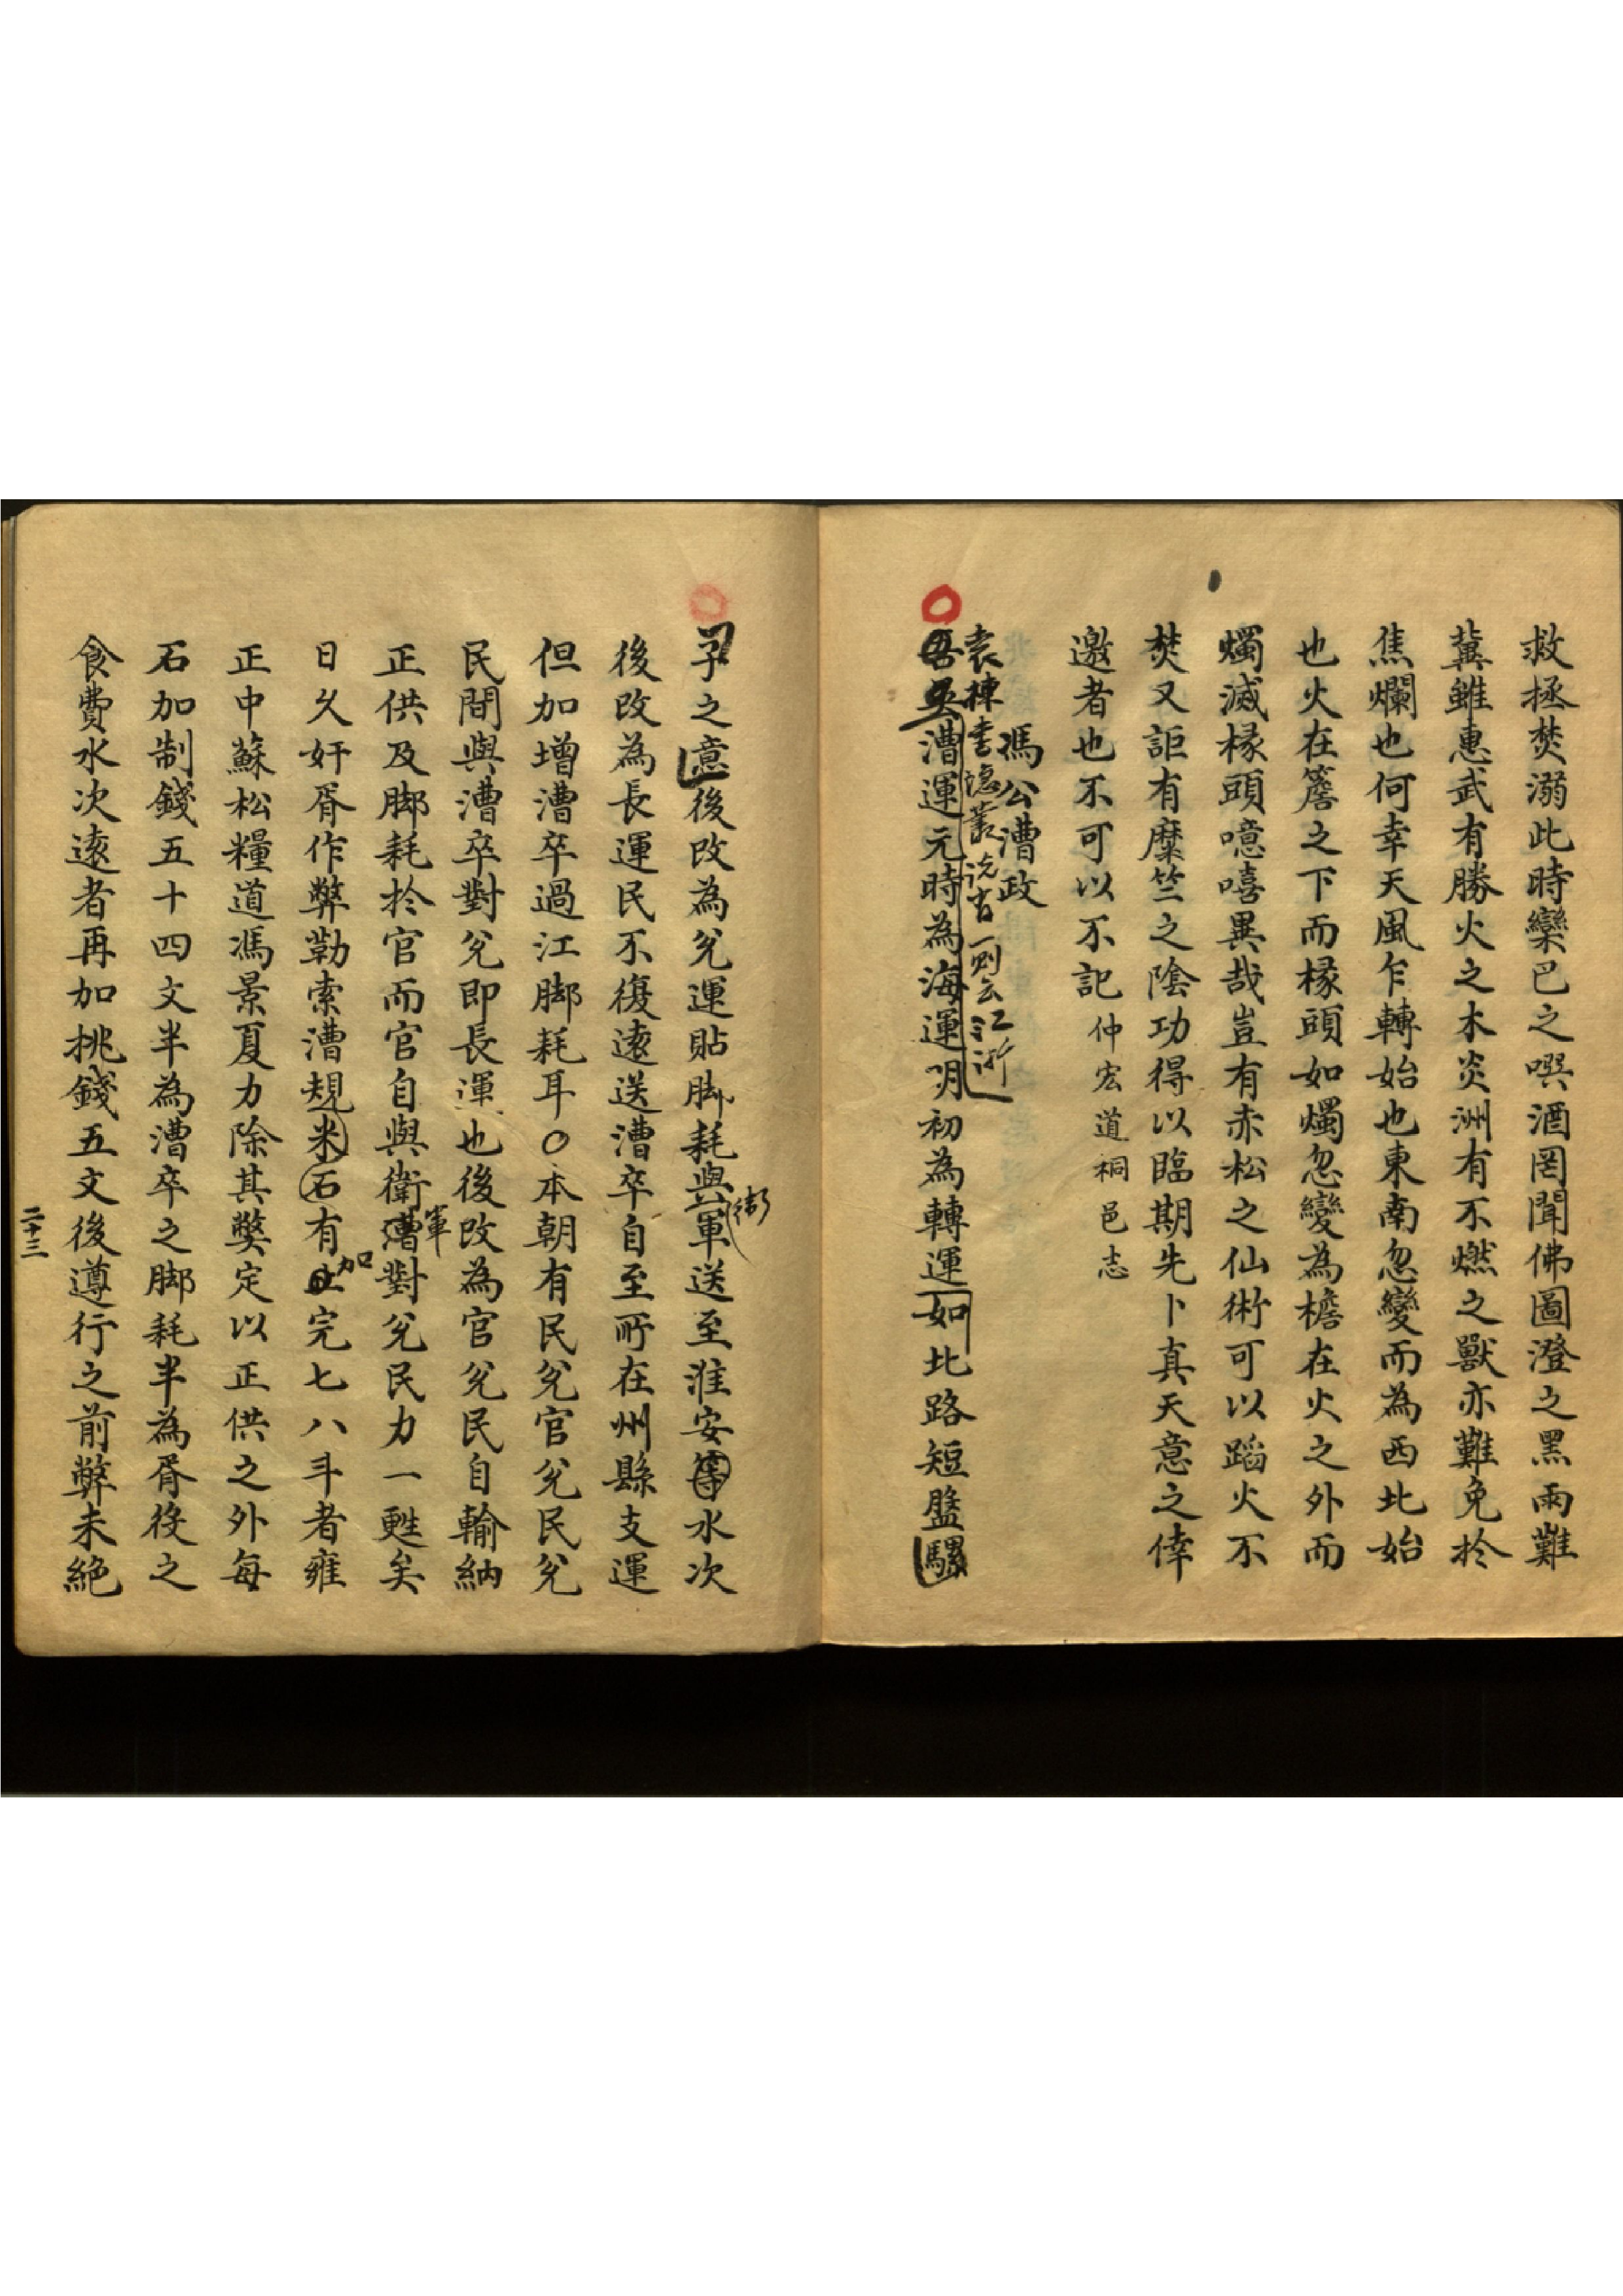 救拯焚溺此時欒巴之噀酒罔聞佛圖澄之黑雨難
冀雖惠武有勝火之木炎洲有不燃之獸亦難免於
焦爛也何幸天風乍轉始也東南忽變而為西北始
也火在簷之下而椽頭如燭忽變為檐在火之外而
燭滅椽頭噫嘻異哉豈有赤松之仙術可以蹈火不
焚又詎有糜竺之陰功得以臨期先卜真天意之倖
邀者也不可以不記 仲宏道桐邑志
馮公漕政
袁棟書隱叢說有一則云江浙
吾吳漕運元時為海運明初為轉運如北路短盤騾
子之意後改為兌運貼脚耗與軍送至淮安等水次
衛
後改為長運民不復遠送漕卒自至所在州縣支運
但加增漕卒過江脚耗耳○本朝有民兌官兌民兌
民間與漕卒對兌即長運也後改為官兌民自輸納
正供及脚耗於官而官自與衛漕對兌民力一甦矣
軍
日久奸胥作弊勒索漕規米石有完七八斗者雍
加
正中蘇松糧道馮景夏力除其弊定以正供之外每
石加制錢五十四文半為漕卒之脚耗半為胥役之
食費水次遠者再加挑錢五文後遵行之前弊未絕
二十三